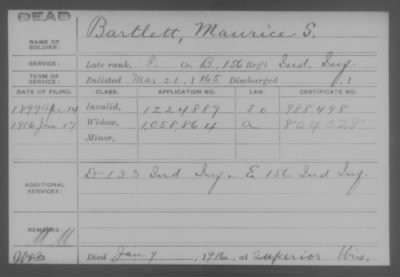 DEAD
NAME OF SOLDIER: Bartlett, Maurice S.
SERVICE: Late rank, P. Co. B, 156 Reg't Ind. Inf.
TERM OF SERVICE: Enlisted Mar 21, 1865 Discharged , 1
DATE OF FILING. CLASS. APPLICATION NO. LAW. CERTIFICATE NO.
1899 Apr 14 Invalid, 1224889 988498
1916 Jan 17 Widow, 1,058,864 a 804028
Minor,
ADDITIONAL SERVICES: D 133 Ind Inf. E 156 Ind Inf.
REMARKS:
Died Jan 9, 1916, at Superior Wis.